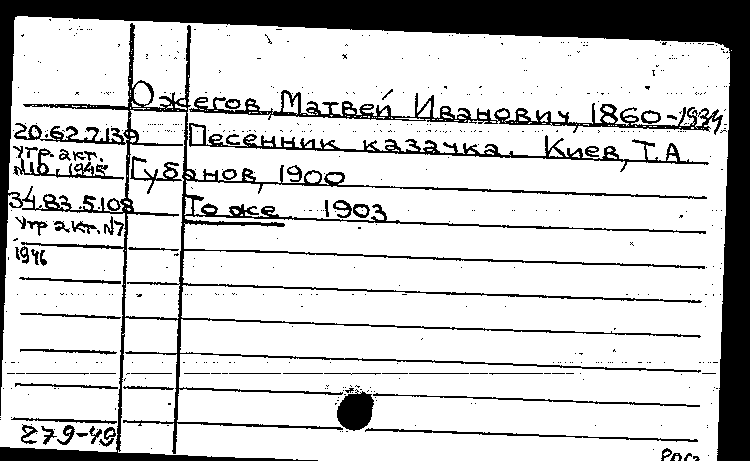 Ожегов, Матвей Иванович, 1860-1934
20.62.7.139 Песенник казачка. Киев, Т.А.
утр. акт. N10, 1945 Губанов, 1900
34.83.5.108 То же 1903
утр акт. N7
1946
279-49